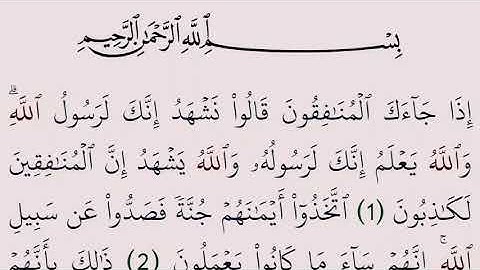 بِسْمِ ٱللَّهِ ٱلرَّحْمَٰنِ ٱلرَّحِيمِ
إِذَا جَآءَكَ ٱلْمُنَٰفِقُونَ قَالُوا۟ نَشْهَدُ إِنَّكَ لَرَسُولُ ٱللَّهِ ۗ
وَٱللَّهُ يَعْلَمُ إِنَّكَ لَرَسُولُهُۥ وَٱللَّهُ يَشْهَدُ إِنَّ ٱلْمُنَٰفِقِينَ
لَكَٰذِبُونَ (1) ٱتَّخَذُوٓا۟ أَيْمَٰنَهُمْ جُنَّةً فَصَدُّوا۟ عَن سَبِيلِ
ٱللَّهِ ۚ إِنَّهُمْ سَآءَ مَا كَانُوا۟ يَعْمَلُونَ (2) ذَٰلِكَ بِأَنَّهُمْ